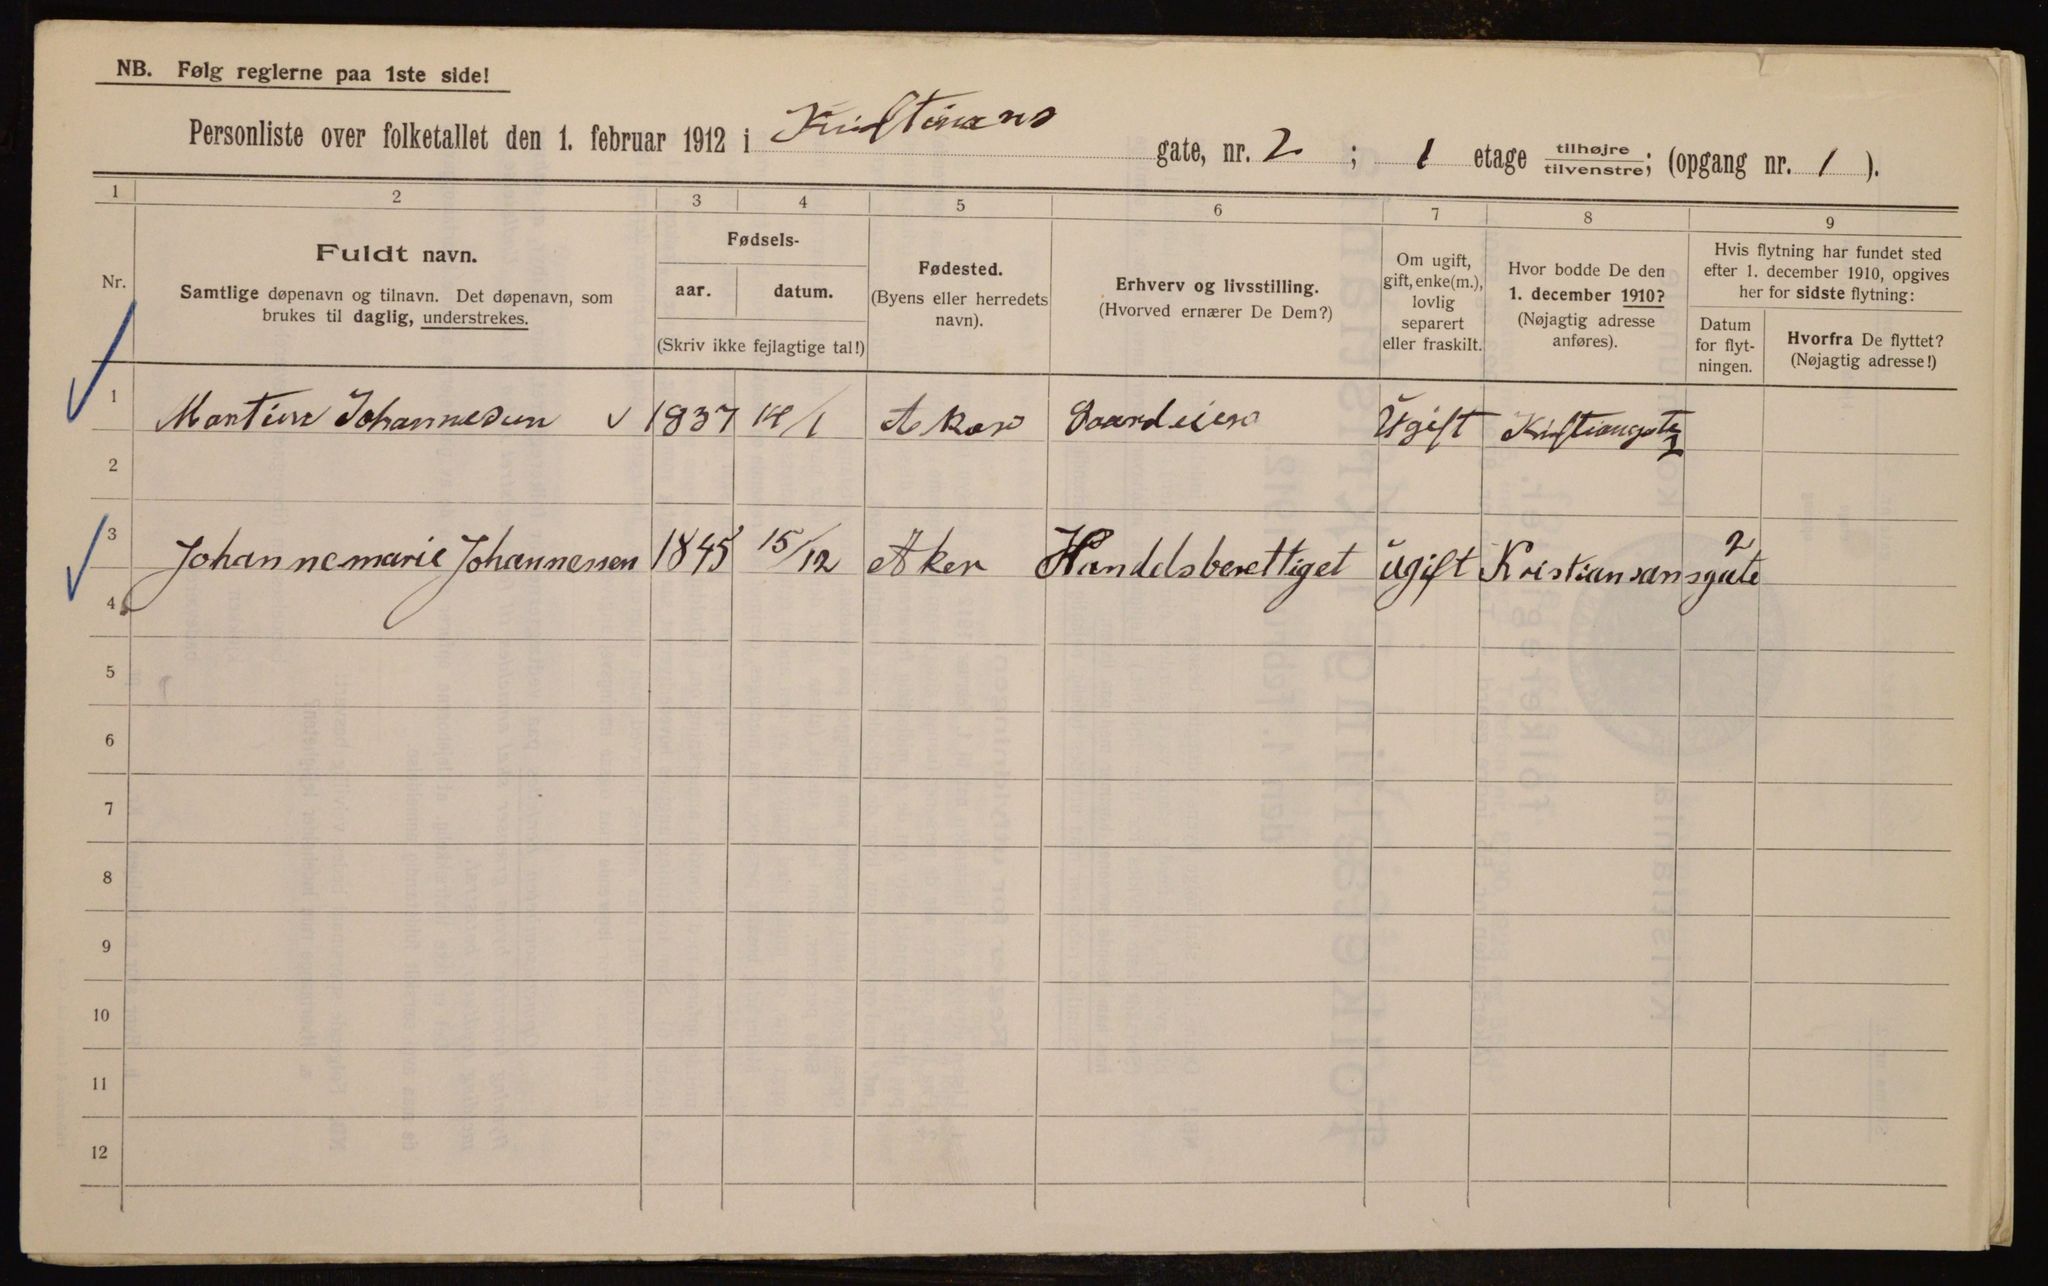 NB. Følg reglerne paa 1ste side!
Personliste over folketallet den 1. februar 1912 i Kristians gate, nr. 2 ; 1 etage tilhøjre/tilvenstre; (opgang nr. 1 ).
1 2 3 4 5 6 7 8 9
Nr.
Fuldt navn.
Samtlige døpenavn og tilnavn. Det døpenavn, som
brukes til daglig, understrekes.
Fødsels-
aar. datum.
(Skriv ikke fejlagtige tal!)
Fødested.
(Byens eller herredets
navn).
Erhverv og livsstilling.
(Hvorved ernærer De Dem?)
Om ugift,
gift, enke(m.),
lovlig
separert
eller fraskilt.
Hvor bodde De den
1. december 1910?
(Nøjagtig adresse
anføres).
Hvis flytning har fundet sted
efter 1. december 1910, opgives
her for sidste flytning:
Datum
for flyt-
ningen.
Hvorfra De flyttet?
(Nøjagtig adresse!)
1 Johannesen 1837 Aker Ugift Kristiansgate 2
2
3 Johannemarie Johannessen 1845 15/12 Aker Handelsberettiget ugift Kristiansansgate 2
4
5
6
7
8
9
10
11
12